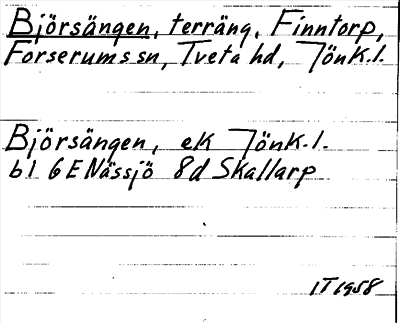 Björsängen, terräng, Finntorp,
Forserums sn, Tveta hd, Jönk.l.
Björsängen, ek Jönk.l.
bl 6E Nässjö 8d Skallarp
IT 1958